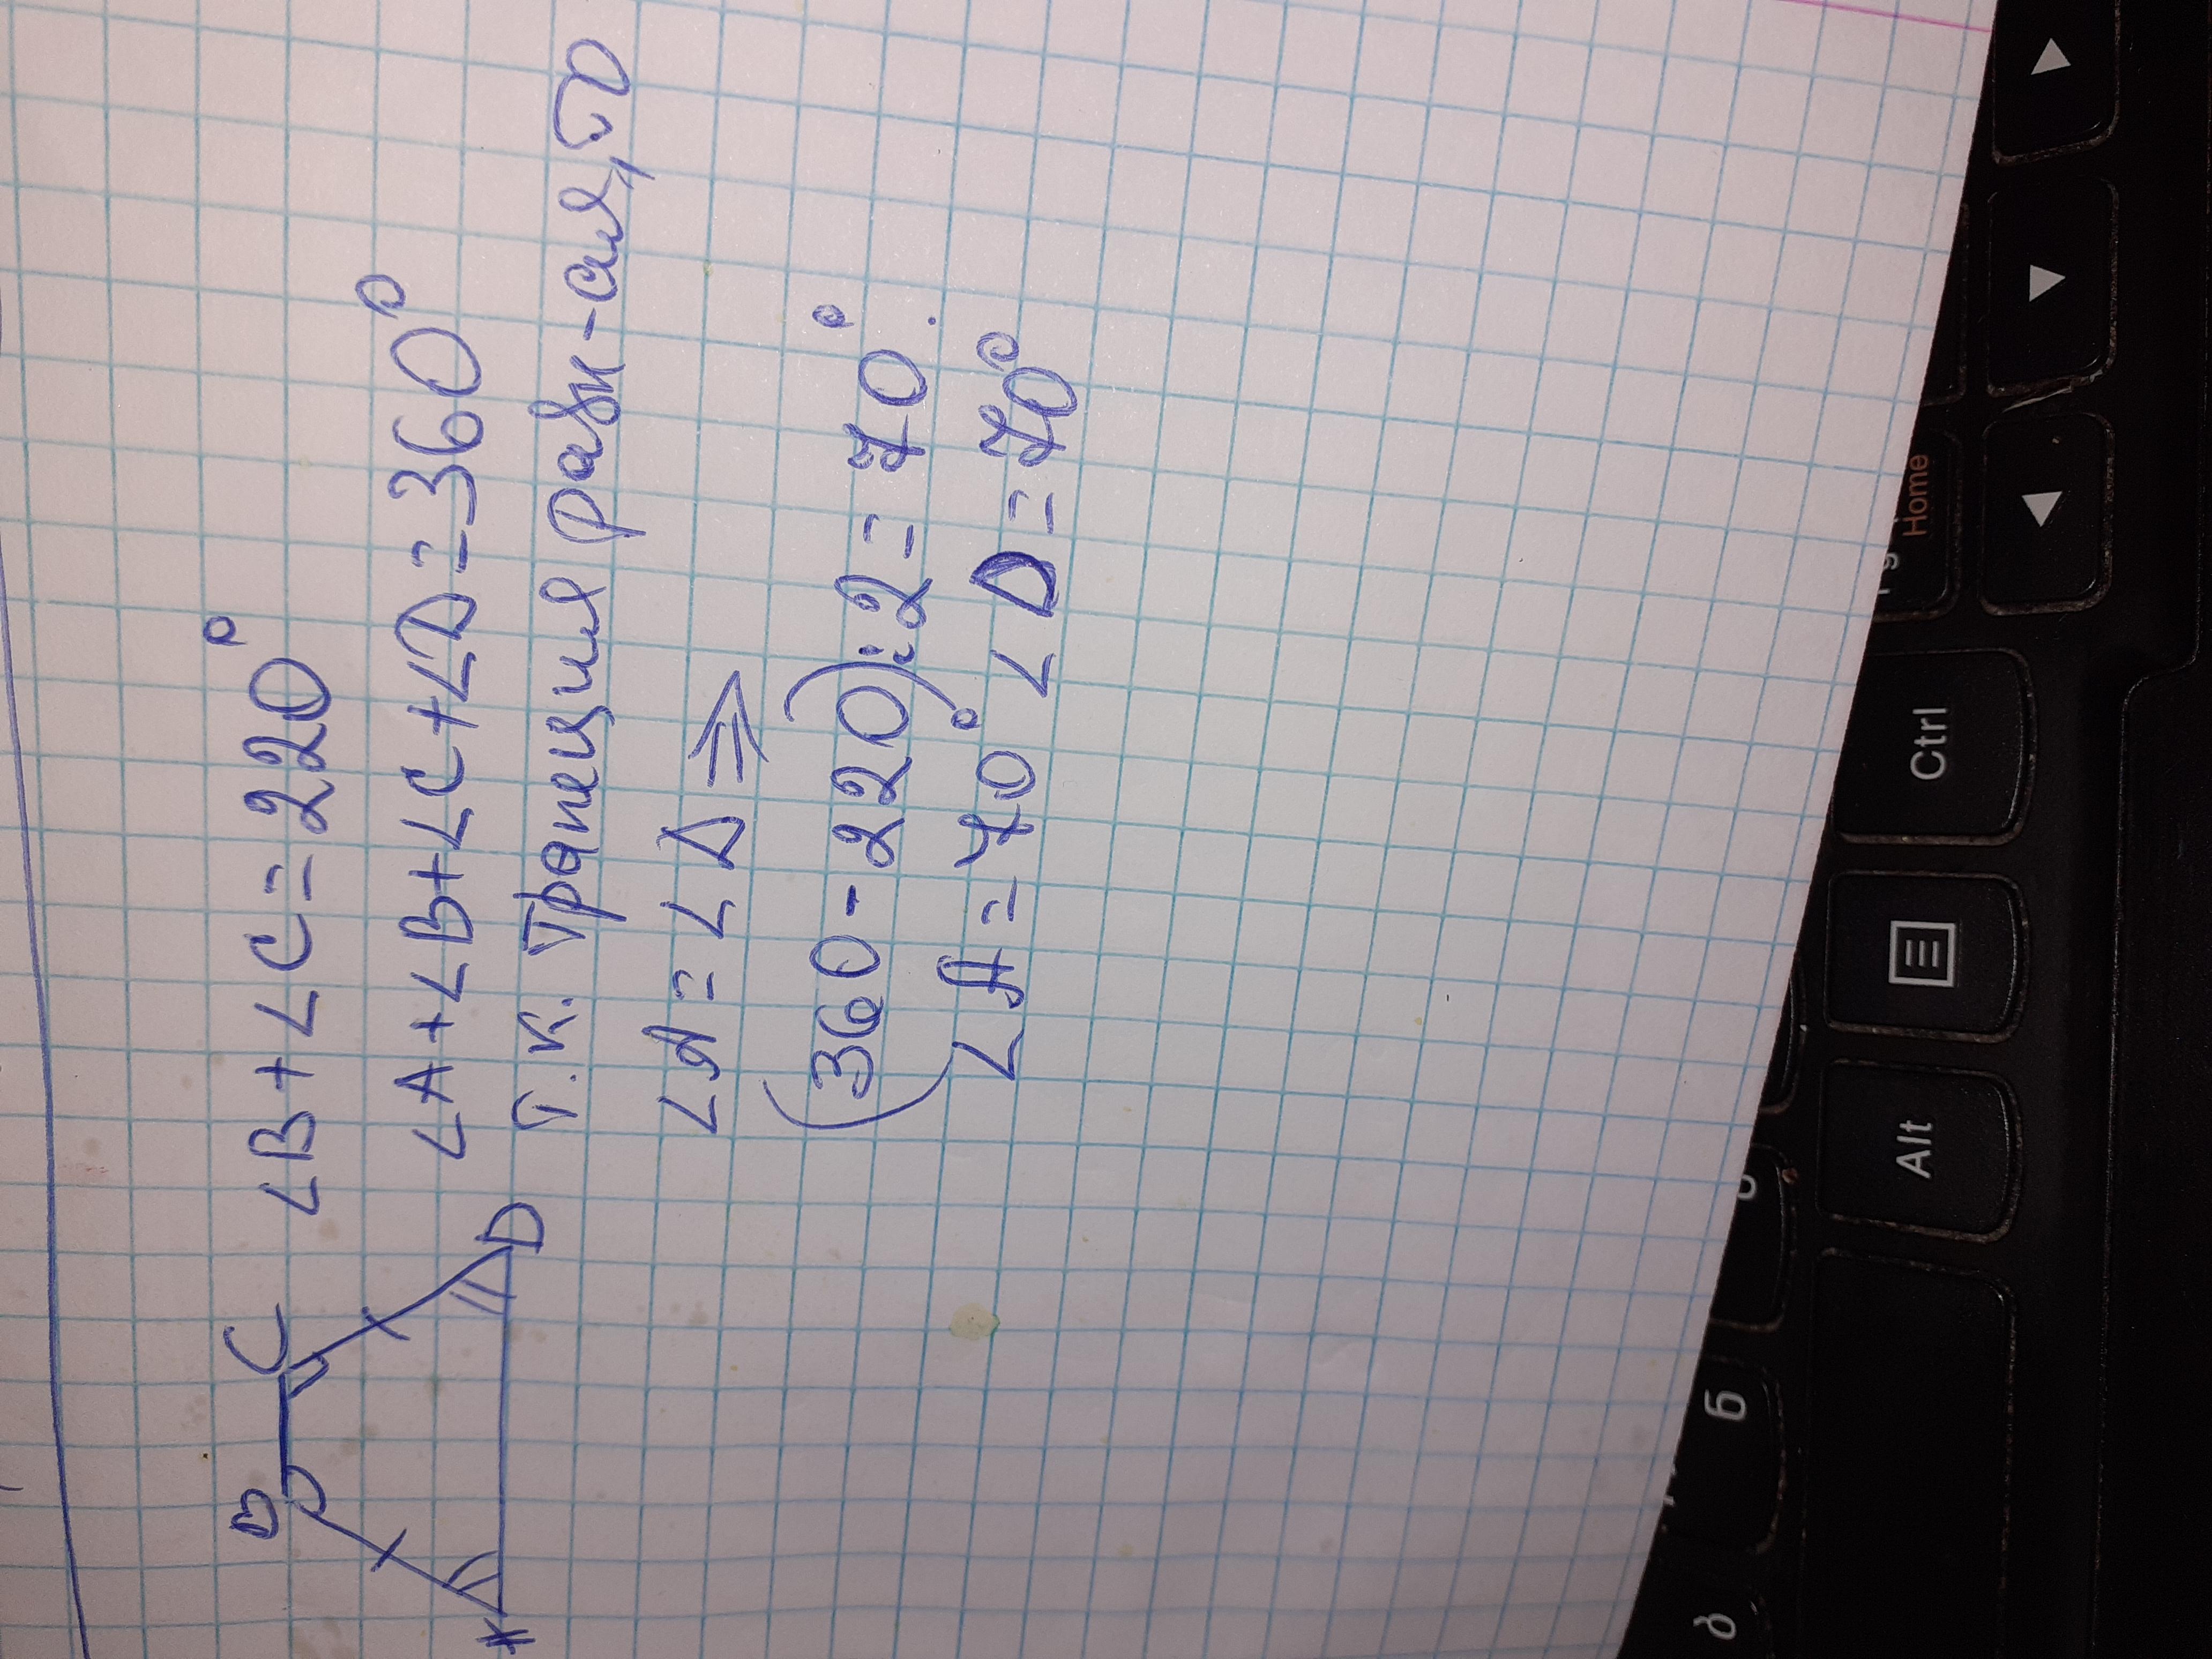 B C
A D
∠B + ∠C = 220°
∠A + ∠B + ∠C + ∠D = 360°
т.к. трапеция равн-ая, то
∠A = ∠D ⇒
(360 - 220) : 2 = 70°.
∠A = 70° ∠D = 70°
Home
Ctrl
Alt
б